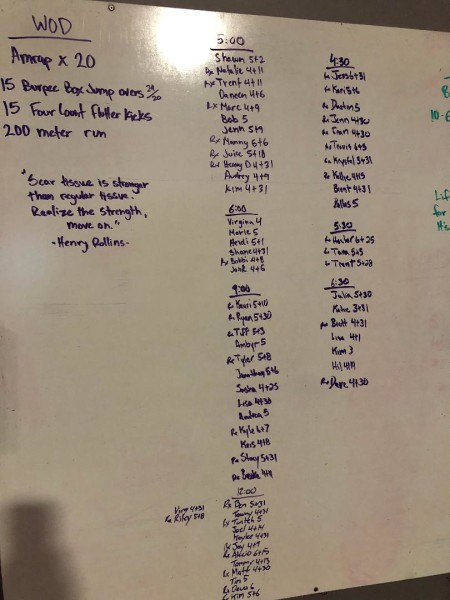 WOD
Amrap x 20
15 Burpee Box Jump overs 24/20
15 Four Count Flutter Kicks
200 meter run
"Scar tissue is stronger
than regular tissue.
Realize the strength,
move on."
-Henry Rollins-
5:00
Shawn 5+2
Rx Natalie 4+11
Rx Trent 4+11
Daneen 4+6
Rx Marc 4+9
Bob 5
Jenn 5+9
Rx Manny 5+6
Rx Juice 5+18
Rx Henry D 4+31
Audrey 4+9
Kim 4+31
6:00
Virginia 4
Marie 5
Heidi 5+1
Shane 4+31
Rx Bobbi 4+8
John 4+6
9:00
Rx Kauri 5+10
Rx Ryan 5+30
Rx TJF 5+3
Ambyr 5
Rx Tyler 5+8
Jonathan 5+6
Sasha 4+25
Lisa 4+30
Andrea 5
Rx Kyle 6+7
Kris 4+8
Rx Stacy 5+31
Rx Brooke 4+11
12:00
Rx Ben 5+31
Tawny 4+31
Rx Twitch 5
Joel 4+14
Hayler 4+31
Rx Jay 4+7
Rx 6+15
Tommy 4+13
Rx Matt 4+30
Tim 5
Rx 6
Kim 5+6
Virg 4+31
Rx Riley 5+8
4:30
Rx Jess 6+31
Rx Kari 5+6
Rx Dustin 5
Rx Jenn 4+30
Rx Fran 4+30
Rx Travis 6+3
Rx Krystal 3+31
Rx Kallie 4+15
Brent 4+31
5
5:30
Rx Hunter 6+25
Tara 5+5
Trent 5+28
6:30
Julia 5+30
Katie 3+31
Rx Brett 4+31
Lina 4+1
Kim 3
Hil 4+11
Rx Dave 4+30